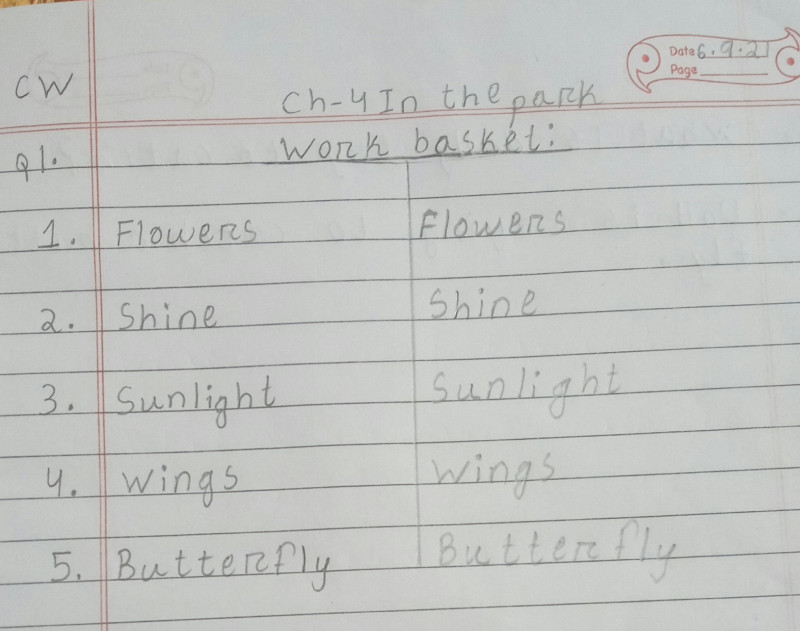 Date 6.9.21
Page
CW
Ch-4 In the park
Q1. Work basket:
1. Flowers Flowers
2. Shine Shine
3. Sunlight Sunlight
4. Wings Wings
5. Butterfly Butterfly